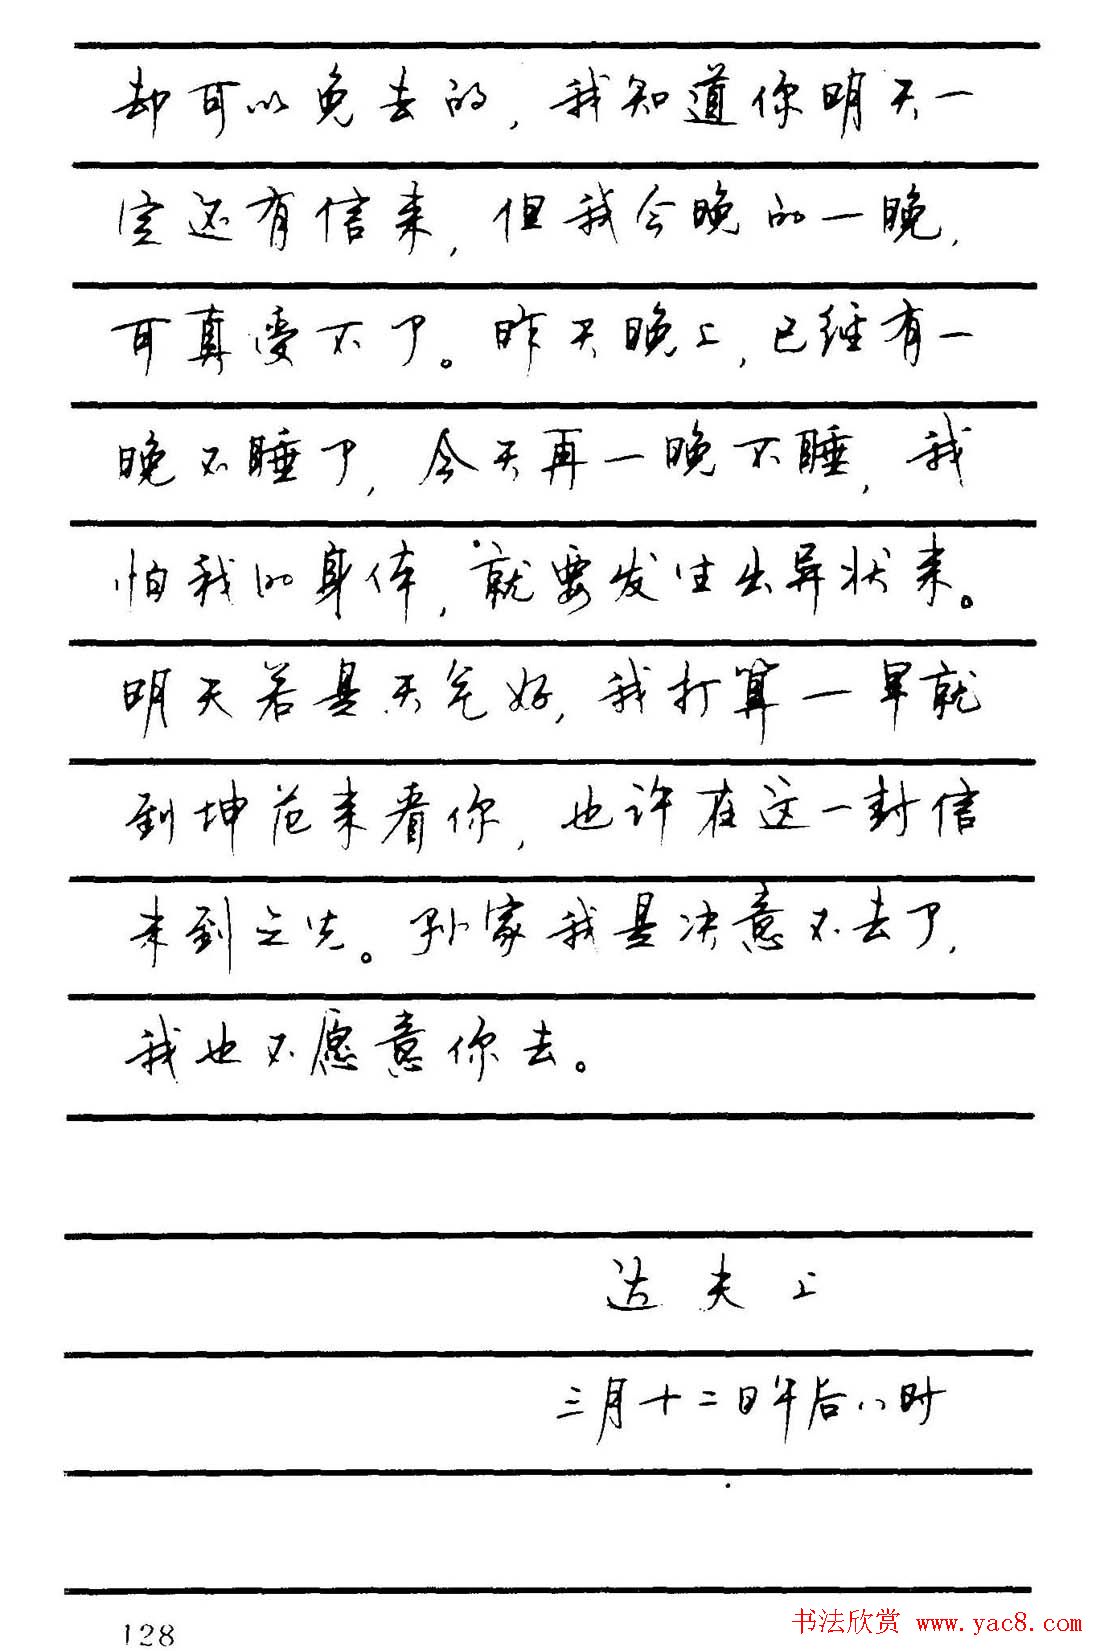 却可以免去的，我知道你明天一
定还有信来，但我今晚的一晚，
可真受不了。昨天晚上，已经有一
晚不睡了，今天再一晚不睡，我
怕我的身体，就要发生出异状来。
明天若是天气好，我打算一早就
到坤范来看你，也许在这一封信
未到之先。孙家我是决意不去了，
我也不愿意你去。
达夫上
三月十二日午后八时
128
书法欣赏 www.yac8.com